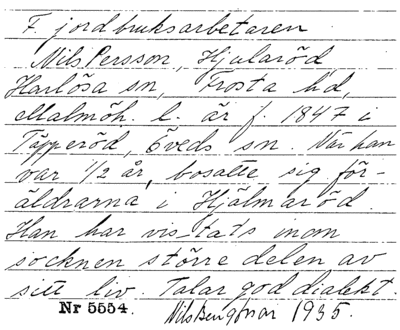 F. jordbruksarbetaren
Nils Persson, Hjularöd
Harlösa sn, Frosta hd,
Malmöh. l. är f. 1847 i
Täpperöd, Öveds sn. När han
var 1/2 år, bosatte sig för-
äldrarna i Hjälmaröd.
Han har vistats inom
socknen större delen av
sitt liv. Talar god dialekt.
Nr 5554. Nils Bengtsson 1935.